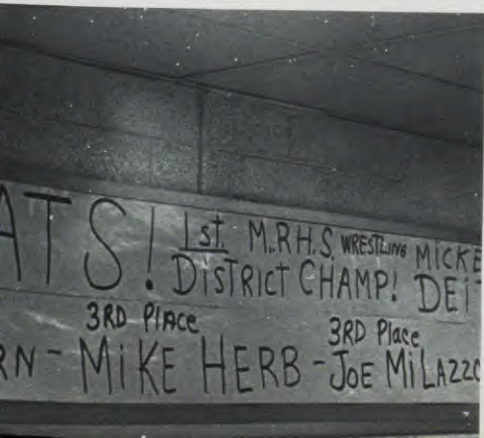 ATS! 1st. M.R.H.S. WRESTLING MICKE
DISTRICT CHAMP! DEIT
3RD PlACE 3RD Place
RN - MIKE HERB - JOE MILAZZO